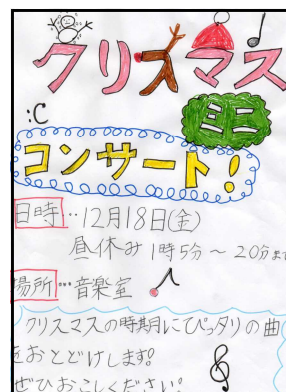 クリスマス
:C
ミニ
コンサート!
日時…12月18日(金)
昼休み 1時5分～20分まで
場所…音楽室
クリスマスの時期にぴッタリの曲
をおとどけします。
ぜひおこしください!